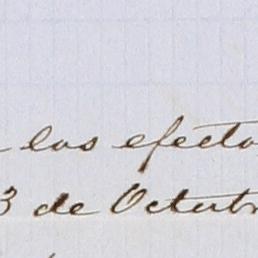 los efecto
3 de Octubr